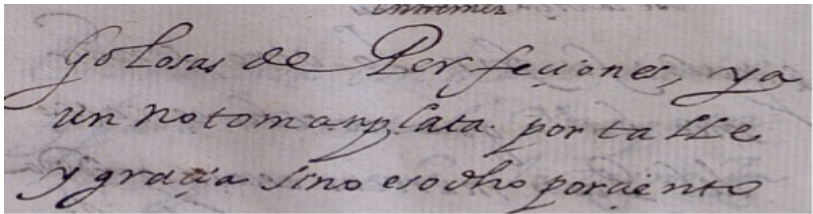 entremez
golosas de Perfeciones, y a
un no toman plata por talle
y gracia sino es ocho por ciento